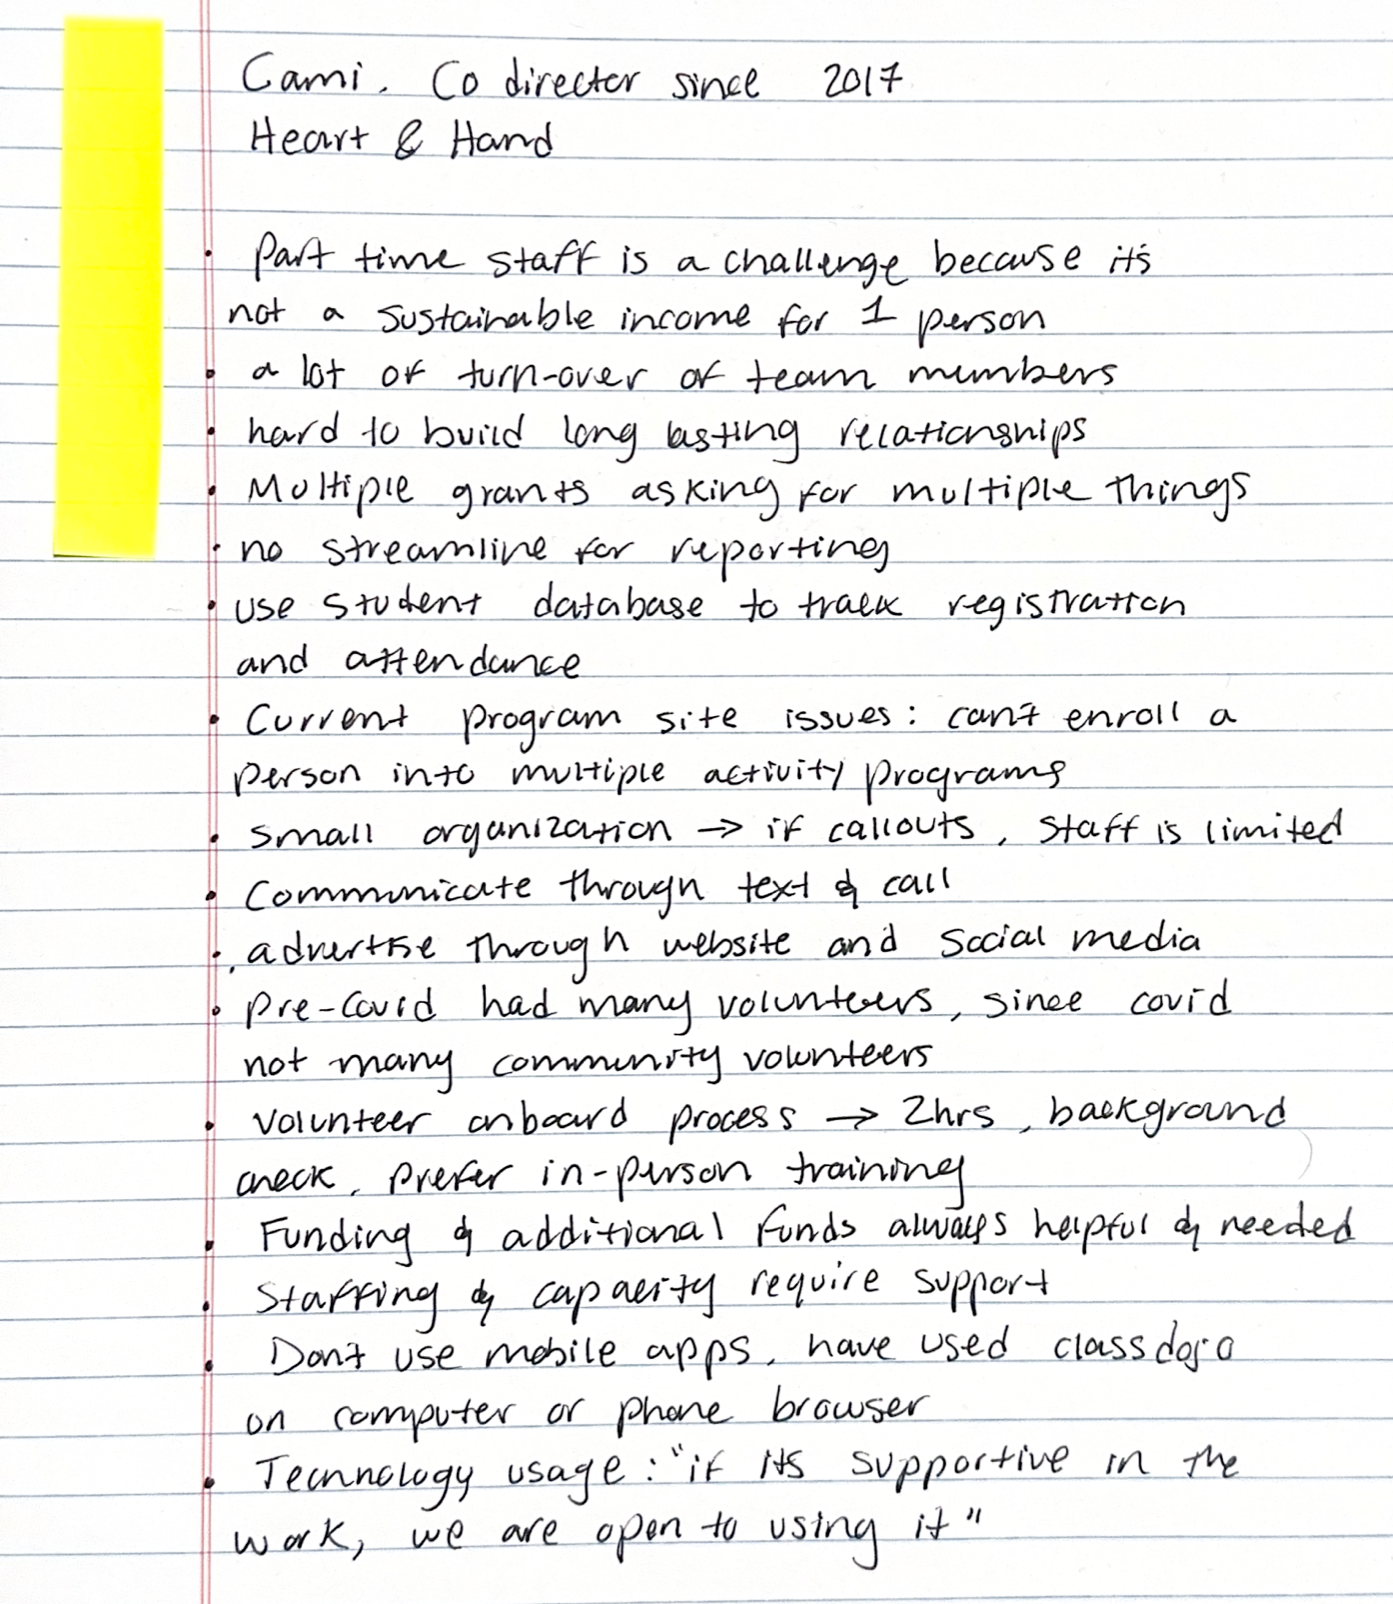 Cami. Co director since 2017
Heart & Hand
• Part time staff is a challenge because it's
not a sustainable income for 1 person
• a lot of turn-over of team members
• hard to build long lasting relationships
• Multiple grants asking for multiple things
• no streamline for reporting
• use student database to track registration
and attendance
• Current program site issues: can't enroll a
person into multiple activity programs
• Small organization → if callouts, staff is limited
• Communicate through text & call
• advertise through website and social media
• pre-covid had many volunteers, since covid
not many community volunteers
• Volunteer onboard process → 2hrs, background
check, prefer in-person training
• Funding & additional funds always helpful & needed
• Staffing & capacity require support
• Don't use mobile apps, have used classdojo
on computer or phone browser
• Technology usage: "if its supportive in the
work, we are open to using it"